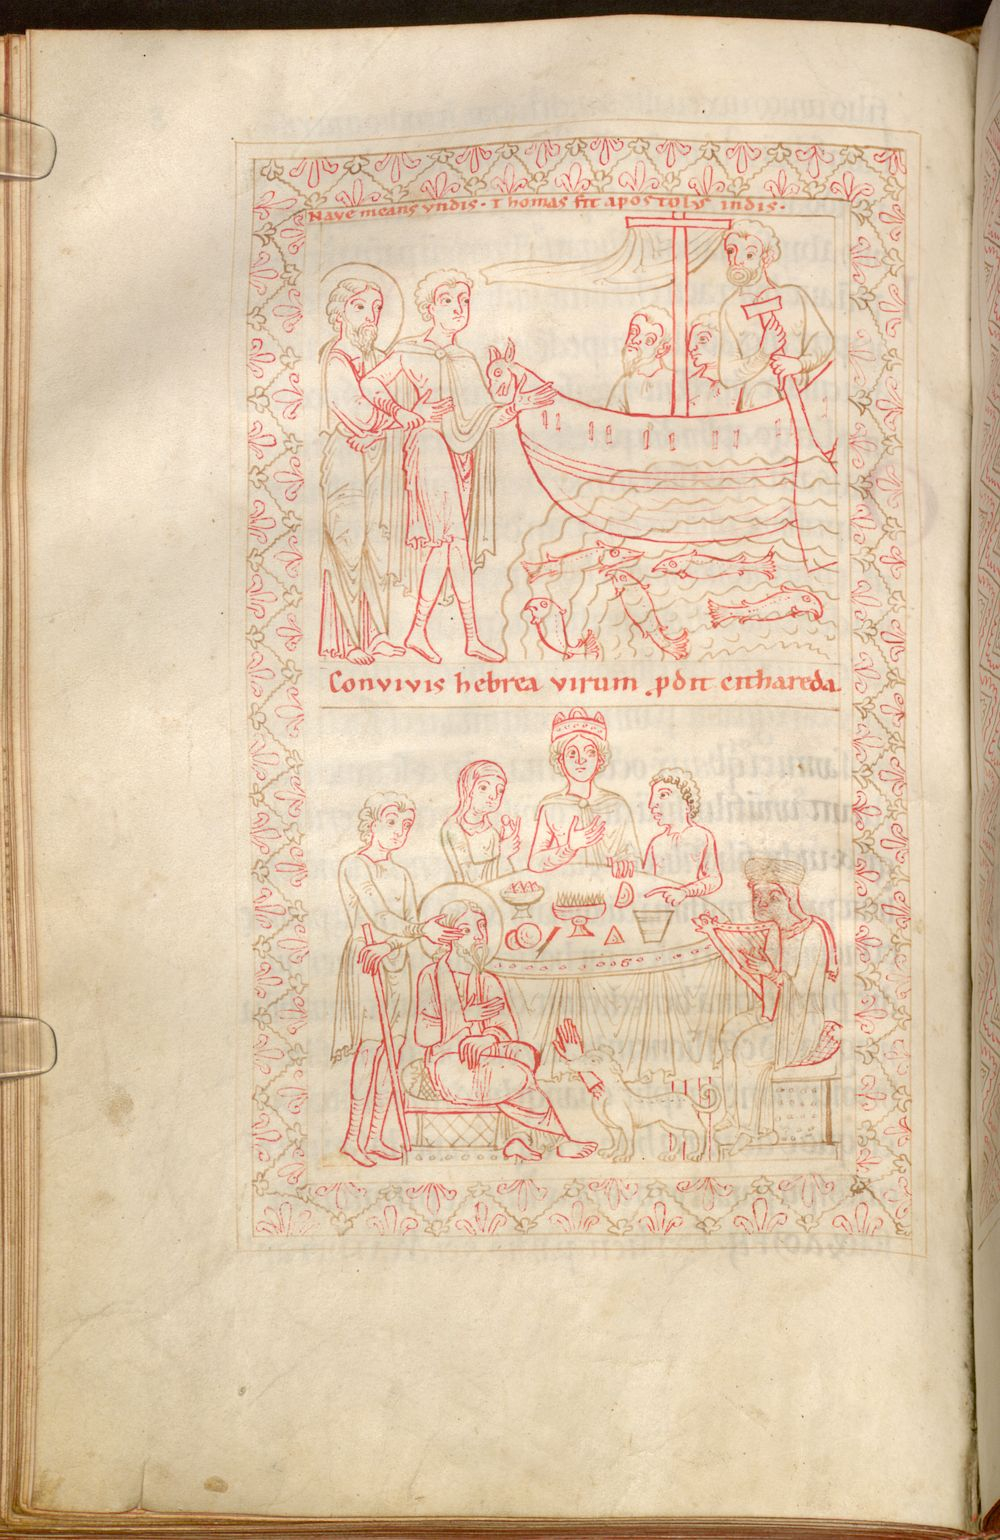 Nave means yndis · Thomas fit apostolys indis ·
Convivis hebrea virum pdit cithareda